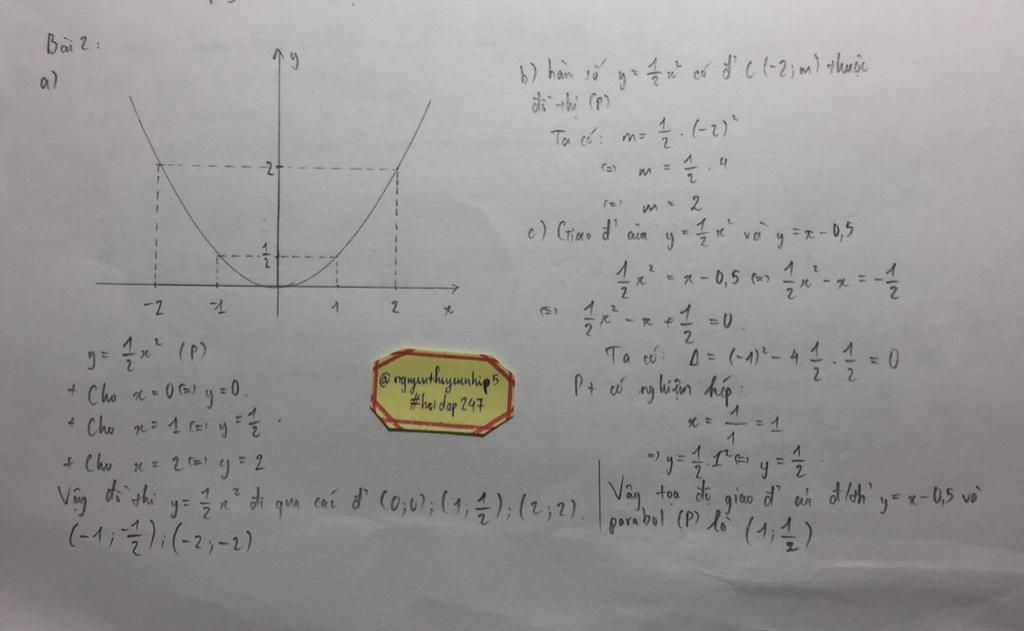 Bài 2:
a)
y
2
1/2
-2 -1 1 2 x
y = 1/2 x² (P)
+ Cho x = 0 (=) y = 0.
+ Cho x = 1 (=) y = 1/2.
+ Cho x = 2 (=) y = 2
Vậy đồ thị y = 1/2 x² đi qua các đ' (0;0); (1; 1/2); (2; 2).
(-1; -1/2); (-2; -2).
@nguyenthuyuynhip5
#hoidap247
b) hàm số y = 1/2 x² có đ' C (-2; m) thuộc
đồ thị (P)
Ta có: m = 1/2 . (-2)²
(=) m = 1/2 . 4
(=) m = 2
c) Giao đ' của y = 1/2 x² và y = x - 0,5
1/2 x² = x - 0,5 (=) 1/2 x² - x = -1/2
(=) 1/2 x² - x + 1/2 = 0
Ta có: Δ = (-1)² - 4. 1/2 . 1/2 = 0
Pt có nghiệm kép:
x = 1/1 = 1
=) y = 1/2 . 1² (=) y = 1/2.
Vậy tọa độ giao đ' của đ/th' y = x - 0,5 và
parabol (P) là (1; 1/2)